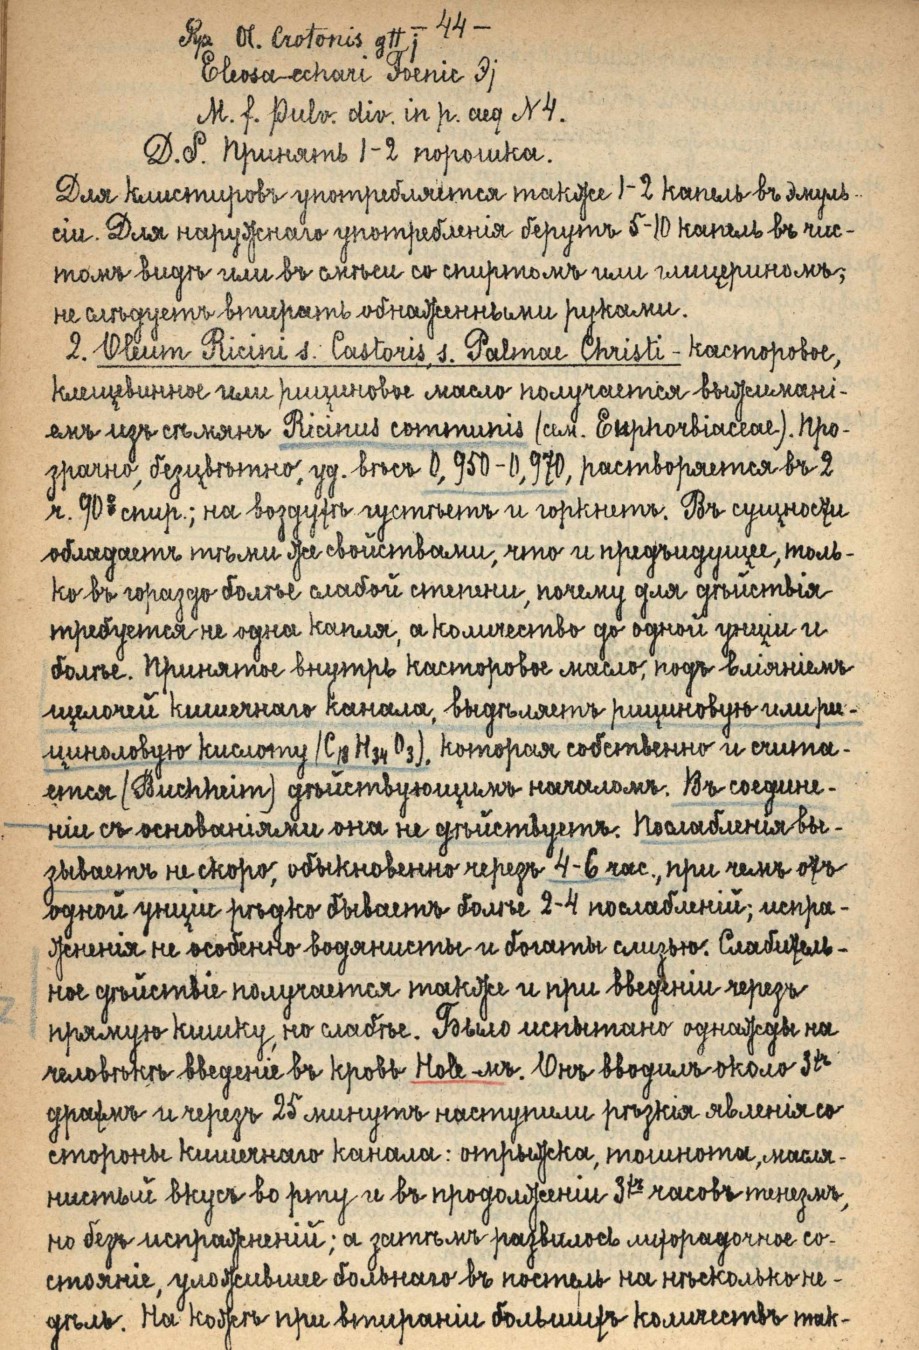 - 44 -
Rp Ol. Crotonis gtt j
Eleosa-echari Foenic ʒj
M. f. Pulv. div. in p. aeq N 4.
D.S. Принять 1-2 порошка.
Для клистировъ употребляется также 1-2 капель въ эмуль-
сіи. Для наружнаго употребленія берутъ 5-10 капель въ чис-
томъ видѣ или въ смѣси со спиртомъ или глицериномъ;
не слѣдуетъ втирать обнаженными руками.
2. Oleum Ricini s. Castoris, s. Palmae Christi - касторовое,
клещевинное или рициновое масло получается выжимані-
емъ изъ сѣмянъ Ricinus communis (сем. Euphorbiaceae). Про-
зрачно, безцвѣтно, уд. вѣсъ 0,950-0,970, растворяется въ 2
ч. 90% спир.; на воздухѣ густѣетъ и горкнетъ. Въ сущности
обладаетъ тѣми же свойствами, что и предъидущее, толь-
ко въ гораздо болѣе слабой степени, почему для дѣйствія
требуется не одна капля, а количество до одной унціи и
болѣе. Принятое внутрь касторовое масло, подъ вліяніемъ
щелочей кишечнаго канала, выдѣляетъ рициновую или ри-
циноловую кислоту (C18 H34 O3), которая собственно и счита-
ется (Buchheim) дѣйствующимъ началомъ. Въ соедине-
ніи съ основаніями она не дѣйствуетъ. Послабленія вы-
зываетъ не скоро, обыкновенно черезъ 4-6 час., при чемъ отъ
одной унціи рѣдко бываетъ болѣе 2-4 послабленій; испра-
жненія не особенно водянисты и богаты слизью. Слабитель-
ное дѣйствіе получается также и при введеніи черезъ
прямую кишку, но слабѣе. Было испытано однажды на
человѣкѣ введеніе въ кровь Hole-мъ. Онъ вводилъ около 3хъ
драхмъ и черезъ 25 минутъ наступили рѣзкія явленія со
стороны кишечнаго канала: отрыжка, тошнота, масля-
нистый вкусъ во рту и въ продолженіи 3хъ часовъ тенезмъ,
но безъ испражненій; а затѣмъ развилось лихорадочное со-
стояніе, уложившее больнаго въ постель на нѣсколько не-
дѣль. На кожѣ при втираніи большихъ количествъ так-